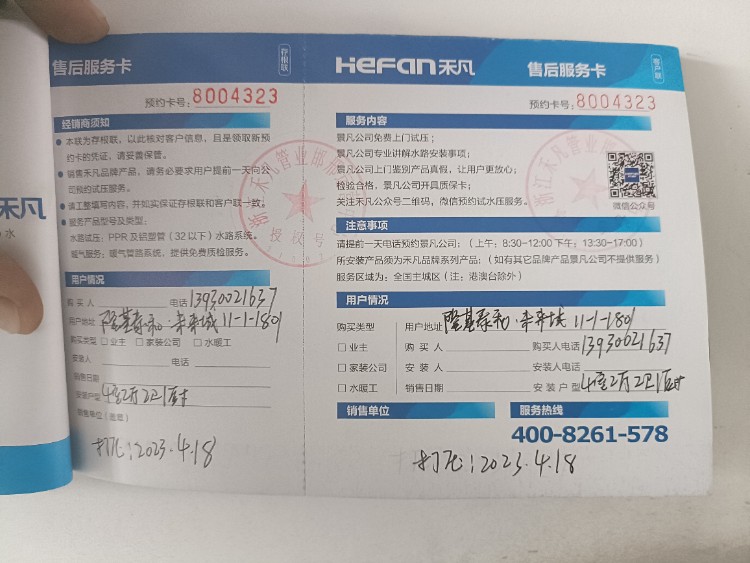 售后服务卡
存根联
预约卡号：8004323
经销商须知
本联为存根联，以此核对客户信息，且是领取新预
约卡的凭证，请妥善保管。
销售禾凡品牌产品，请务必要求用户提前一天向公
司预约试压服务。
请工整填写内容，并如实保证存根联和客户联一致。
服务产品型号及类型：
水路试压：PPR及铝塑管（32以下）水路系统。
暖气服务：暖气管路系统，提供免费质检服务。
用户情况
购买人 电话 13930021637
用户地址 隆基泰和·未来城11-1-1801
购买类型 □业主 □家装公司 □水暖工
安装人 电话
销售日期
安装户型 4室2厅2卫1厨
销售单位（盖章）
打压：2023.4.18
禾凡
HeFan禾凡
售后服务卡
客户联
预约卡号：8004323
服务内容
景凡公司免费上门试压；
景凡公司专业讲解水路安装事项；
景凡公司上门鉴别产品真假，让用户更放心；
检验合格，景凡公司开具质保卡；
关注禾凡公众号二维码，微信预约试水压服务。
微信公众号
注意事项
请提前一天电话预约景凡公司；（上午：8:30-12:00 下午：13:30-17:00）
所安装产品须为禾凡品牌系列产品；（如有其它品牌产品景凡公司不提供服务）
服务区域为：全国主城区（注：港澳台除外）
用户情况
购买类型 用户地址 隆基泰和·未来城11-1-1801
□业主 购买人 购买人电话 13930021637
□家装公司 安装人 安装人电话
□水暖工 销售日期 安装户型 4室2厅2卫1厨
销售单位
服务热线
400-8261-578
打压：2023.4.18